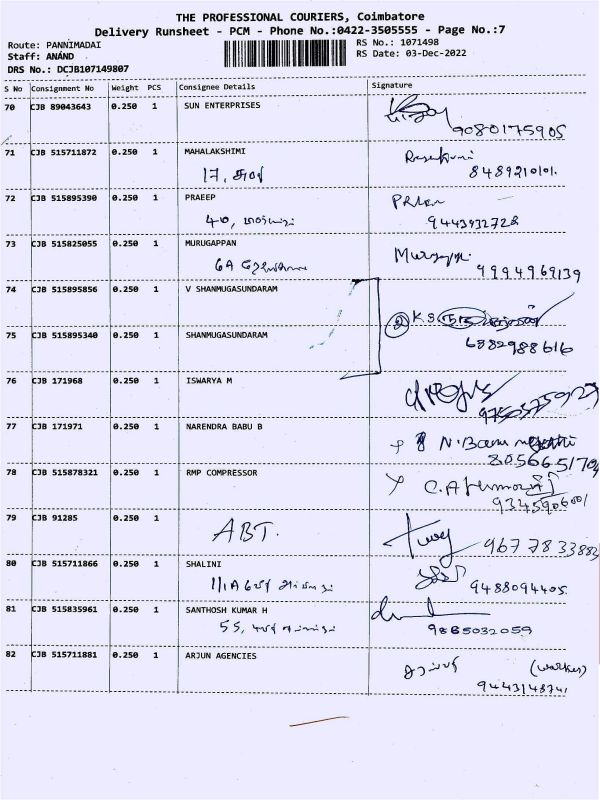 THE PROFESSIONAL COURIERS, Coimbatore
Delivery Runsheet - PCM - Phone No.:0422-3505555 - Page No.:7
Route: PANNIMADAI RS No.: 1071498
Staff: ANAND RS Date: 03-Dec-2022
DRS No.: DCJB107149807
S No Consignment No Weight PCS Consignee Details Signature
70 CJB 89043643 0.250 1 SUN ENTERPRISES
9080175905
71 CJB 515711872 0.250 1 MAHALAKSHMI
17, 8489210101.
72 CJB 515895390 0.250 1 PRAEEP
40, 9443932728
73 CJB 515825055 0.250 1 MURUGAPPAN
6A 9994969139
74 CJB 515895856 0.250 1 V SHANMUGASUNDARAM
② K.S
75 CJB 515895340 0.250 1 SHANMUGASUNDARAM
6882988616
76 CJB 171968 0.250 1 ISWARYA M
77 CJB 171971 0.250 1 NARENDRA BABU B
8056651704
78 CJB 515878321 0.250 1 RMP COMPRESSOR
C.A
79 CJB 91285 0.250 1
ABT. 9677833882
80 CJB 515711866 0.250 1 SHALINI
9488094405.
81 CJB 515835961 0.250 1 SANTHOSH KUMAR H
55, 9865032059
82 CJB 515711881 0.250 1 ARJUN AGENCIES
(worker)
9443148741